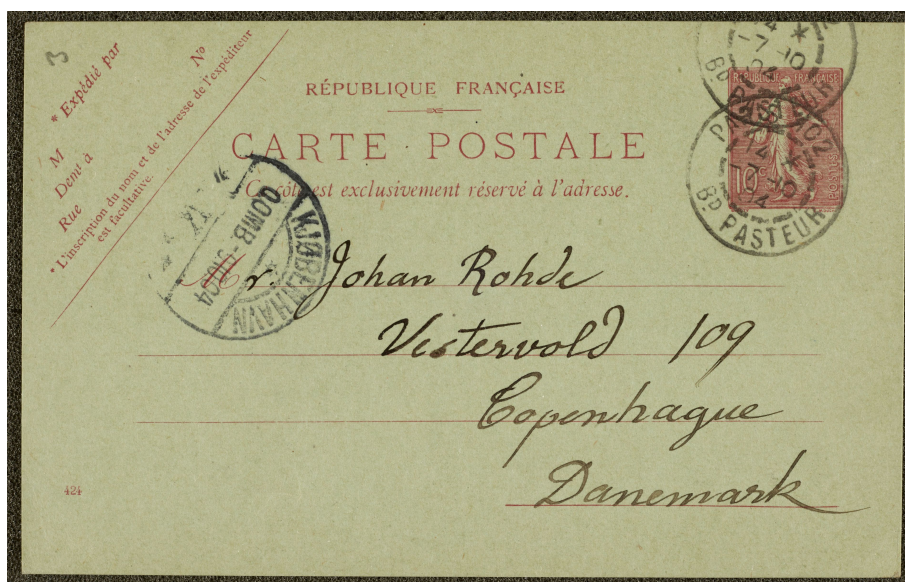 3
* Expédié par
No
M
Demt à
Rue
* L'inscription du nom et de l'adresse de l'expéditeur
est facultative.
RÉPUBLIQUE FRANÇAISE
CARTE POSTALE
Ce côté est exclusivement réservé à l'adresse.
RÉPUBLIQUE FRANÇAISE
10c
POSTES
PARIS 102
-7 10
04
BD PASTEUR
-7 10
04
BD PASTEUR
KJØBENHAVN
OMB
Mr. Johan Rohde
Vestervold 109
Copenhague
Danemark
424